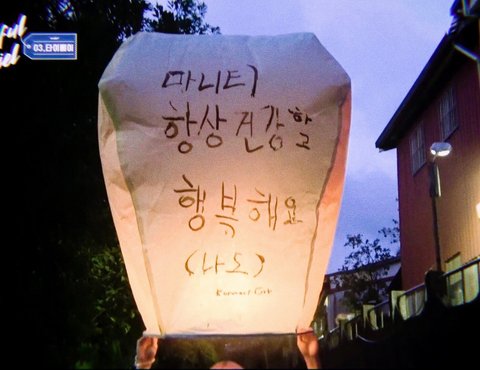 ful
iel
03.타이베이
마니티
항상 건강할
행복해요
(나도)